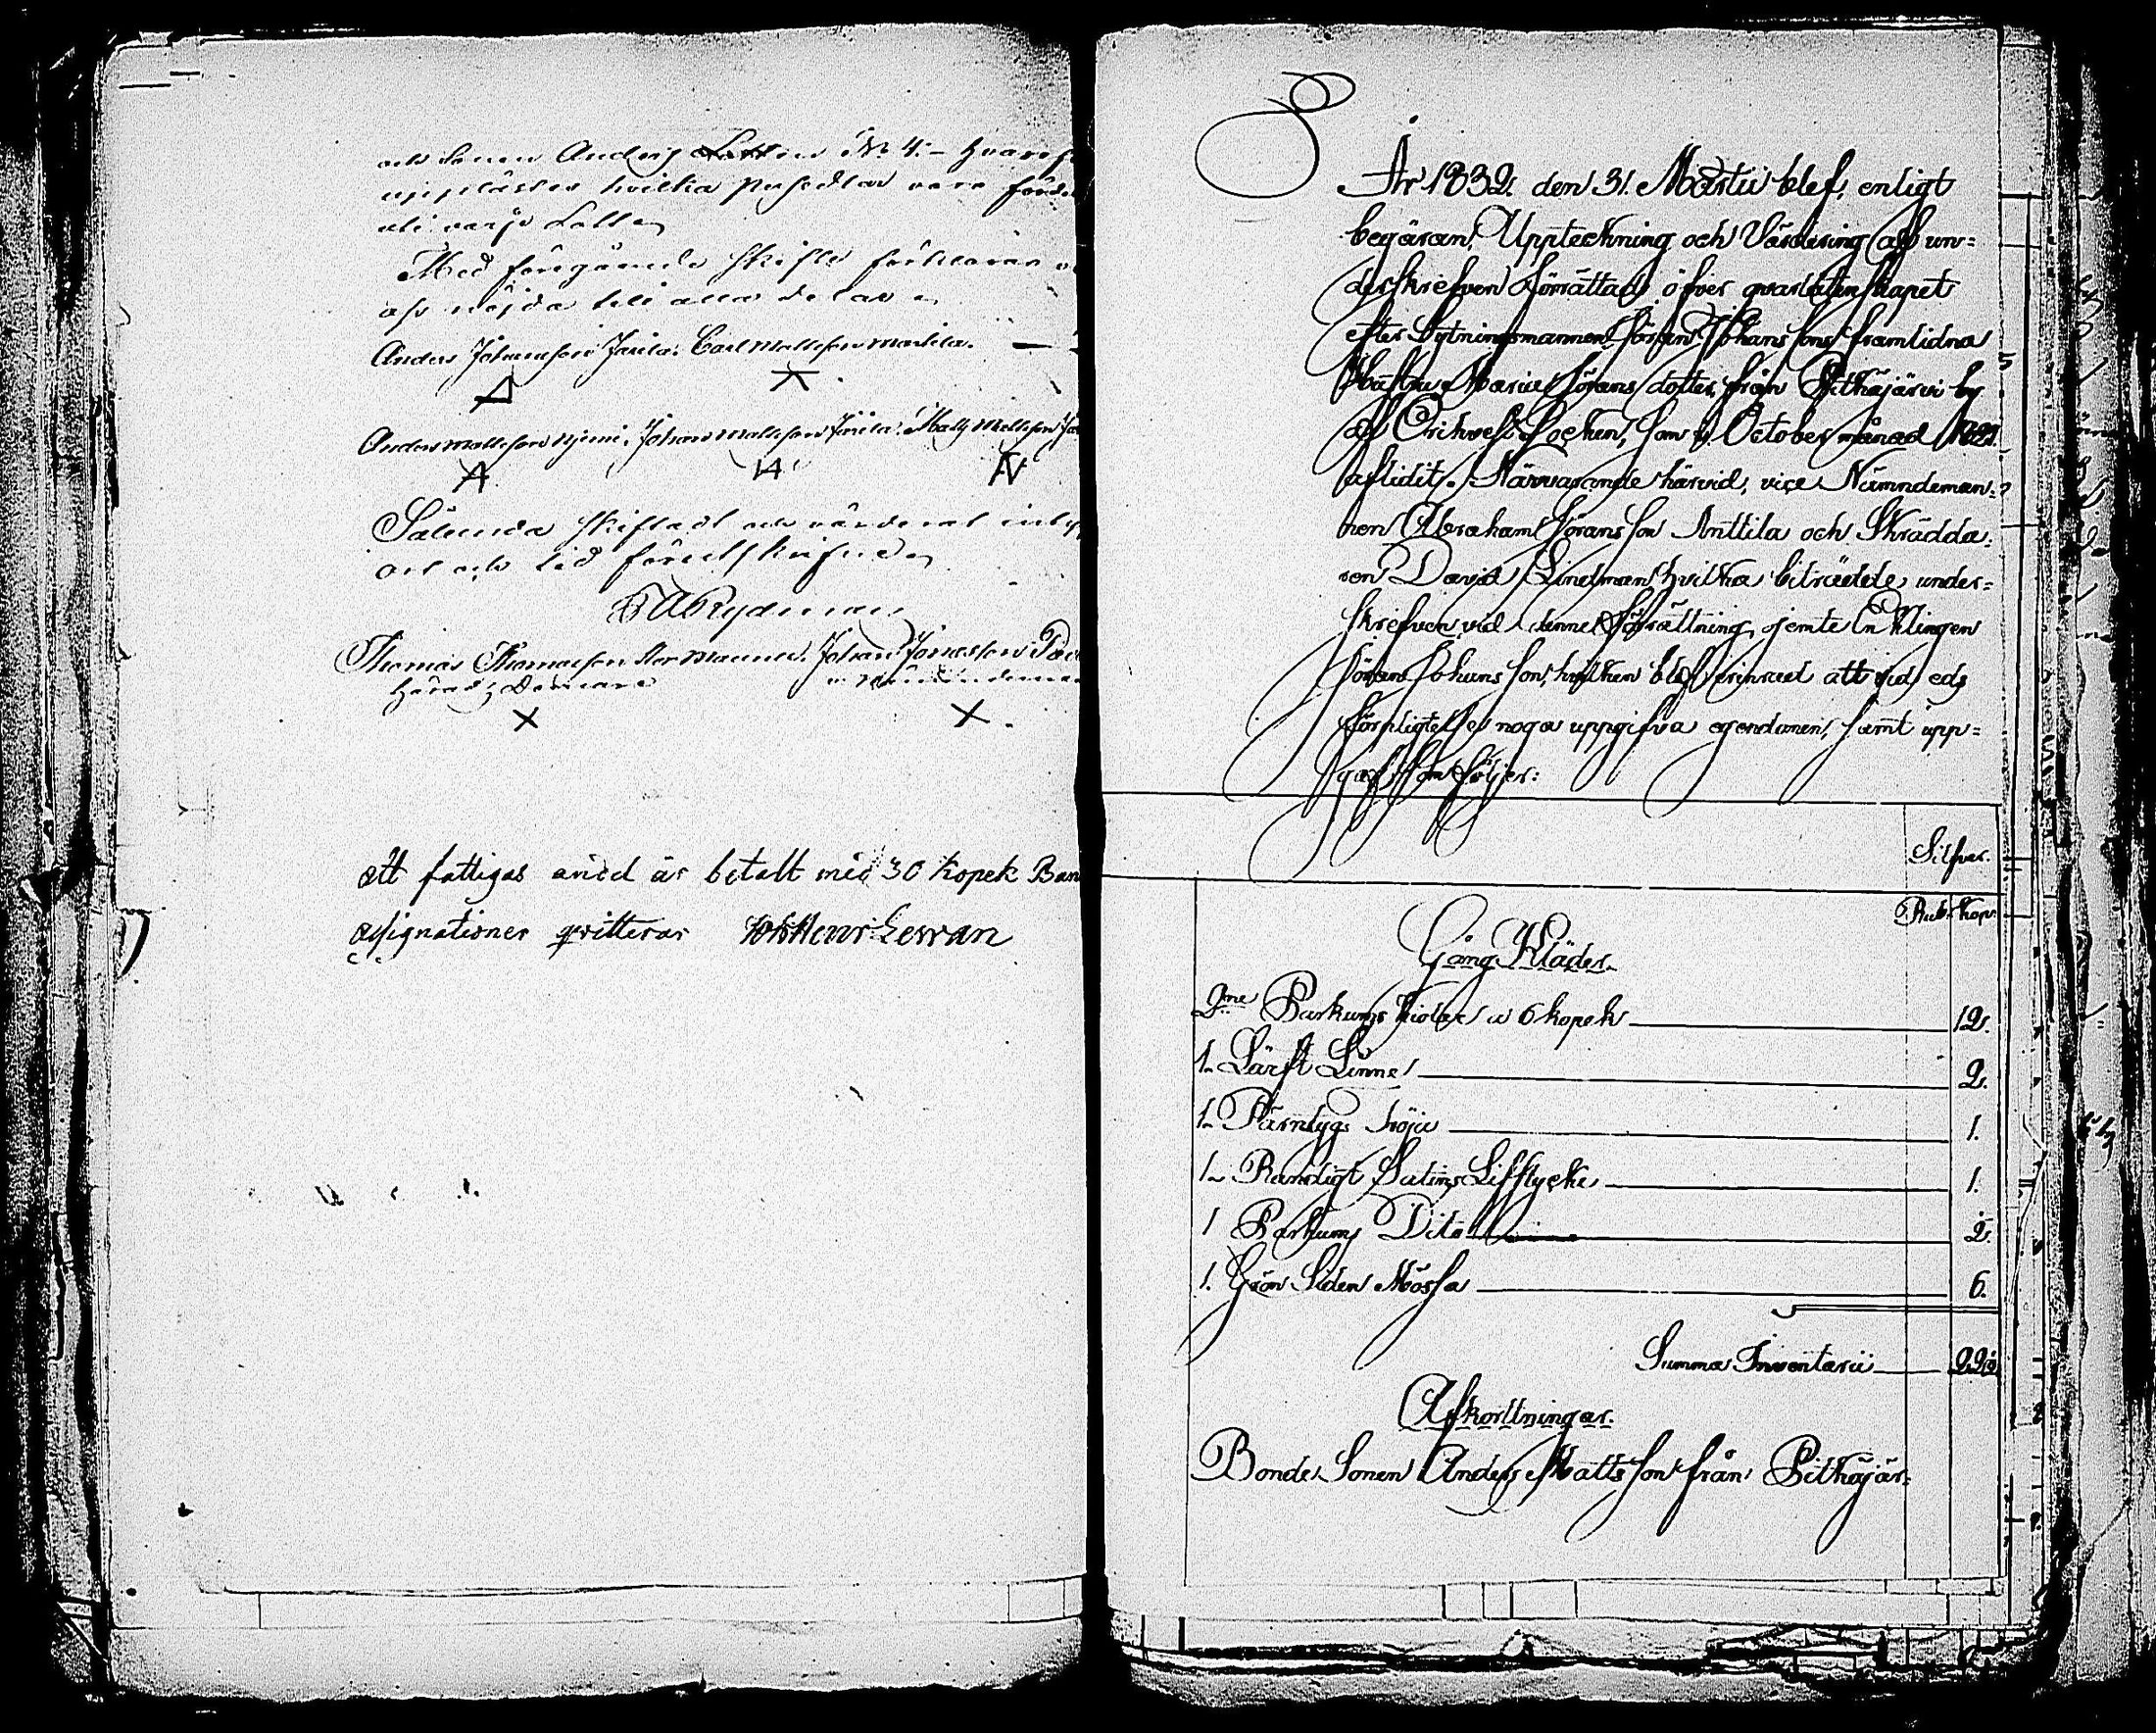 och Sonen Anders Lotten N: 4. –
upplästes hvilka
uti varje Lott
Med föregående skifte förklarar
oss nöjda till alla delar
Anders Johansson Jutila. Carl Mattsson Mattila.
Anders Mattsson Niemi. Johan Mattsson Jutila. Matts Mattsson
Sålunda skiftadt och värderat
ort och tid förutskrifne
Rydman
Thomas Thomasson Johan Jonasson
Härads Domare
Att fattigas andel är betalt med 30 Kopek Ban
assignationer qvitterar Henr: Lewan
År 1832. den 31. Martii blef, enligt
begäran, Uppteckning och Värdering af un=
derskrefven förrättad, öfver qvarlåtenskapet
efter Bytningsmannen Göran Johansons framlidna
Hustru Maria Görans dotter från Pitkäjärvi by
af Orihvesi Socken, som i October månad 1821
aflidit. Närvarande härvid, vice Nämndeman=
nen Abraham Göransson Anttila och Skrädda=
ren David Lindman, hvilka biträdde under=
skrefven vid denne Förrättning, jemte Enklingen
Göran Johansson, hvilken blef erinrad att vid eds
förpligtelse noga uppgifva egendomen, samt upp=
gaf som följer:
Silfver.
Rub. Kop.
Gång Kläder.
2ne Parkums Kiolar a 6 kopek 12.
1. Lärft Linne 2.
1. Tröja 1.
1. Randigt Satins Lifstycke 1.
1 Parkums Dito 2.
1. Grön Siden Mössa 6.
Summa Inventarii
Afkorttningar.
Bonde Sonen Anders Mattsson från Pitkäjär=